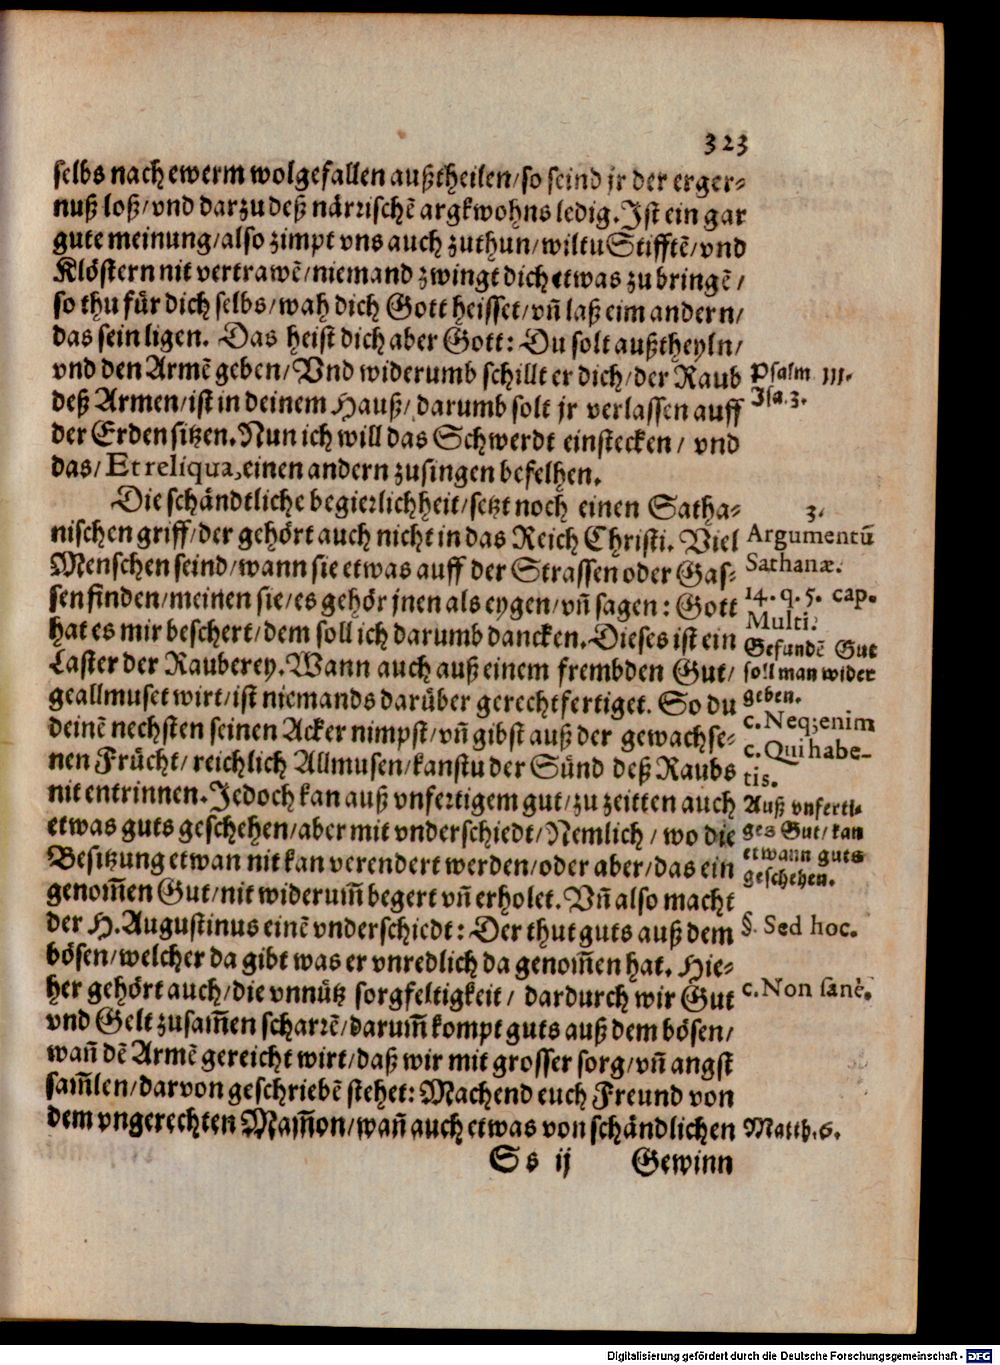 323
selbs nach ewerm wolgefallen außtheilen/so seind jr der erger⸗
nuß loß/vnd darzu deß närrischē argkwohns ledig. Ist ein gar
gute meinung/also zimpt vns auch zuthun/wiltu Stifftē/vnd
Klöstern nit vertrawē/niemand zwingt dich etwas zu bringē/
so thu für dich selbs/wah dich Gott heisset/vñ laß eim andern/
das sein ligen. Das heist dich aber Gott: Du solt außtheyln/
vnd den Armē geben/Vnd widerumb schillt er dich/der Raub
Psalm 111.
deß Armen/ist in deinem Hauß/darumb solt jr verlassen auff
Isa.3.
der Erden sitzen. Nun ich will das Schwerdt einstecken/ vnd
das/ Et reliqua, einen andern zusingen befelhen.
Die schändtliche begierlichheit/setzt noch einen Satha⸗
3.
nischen griff/der gehört auch nicht in das Reich Christi. Viel
Argumentũ
Menschen seind/wann sie etwas auff der Strassen oder Gas⸗
Sathanæ.
sen finden/meinen sie/es gehör jnen als eygen/vñ sagen: Gott
14. q. 5. cap.
hat es mir beschert/dem soll ich darumb dancken. Dieses ist ein
Multi.
Gefundē Gut
Laster der Rauberey. Wann auch auß einem frembden Gut/
soll man wider
geallmuset wirt/ist niemands darüber gerechtfertiget. So du
geben.
deinē nechsten seinen Acker nimpst/vñ gibst auß der gewachse⸗
c. Neq; enim
nen Frücht/ reichlich Allmusen/kanstu der Sünd deß Raubs
c. Qui habe-
tis.
nit entrinnen. Jedoch kan auß vnfertigem gut/zu zeitten auch
Auß vnferti⸗
etwas guts geschehen/aber mit vnderschiedt/Nemlich/ wo die
ges Gut/kan
Besitzung etwan nit kan verendert werden/oder aber/das ein
etwann guts
genom̄en Gut/nit widerum̄ begert vñ erholet. Vñ also macht
geschehen.
der H. Augustinus einē vnderschiedt: Der thut guts auß dem
§. Sed hoc.
bösen/welcher da gibt was er vnredlich da genom̄en hat. Hie⸗
her gehört auch/die vnnütz sorgfeltigkeit/ dardurch wir Gut
c. Non sanè.
vnd Gelt zusam̄en scharrē/darum̄ kompt guts auß dem bösen/
wañ dē Armē gereicht wirt/daß wir mit grosser sorg/vñ angst
sam̄len/darvon geschriebē stehet: Machend euch Freund von
dem vngerechten Mam̄on/wañ auch etwas von schändlichen
Matth.6.
Ss ij Gewinn
Digitalisierung gefördert durch die Deutsche Forschungsgemeinschaft - DFG